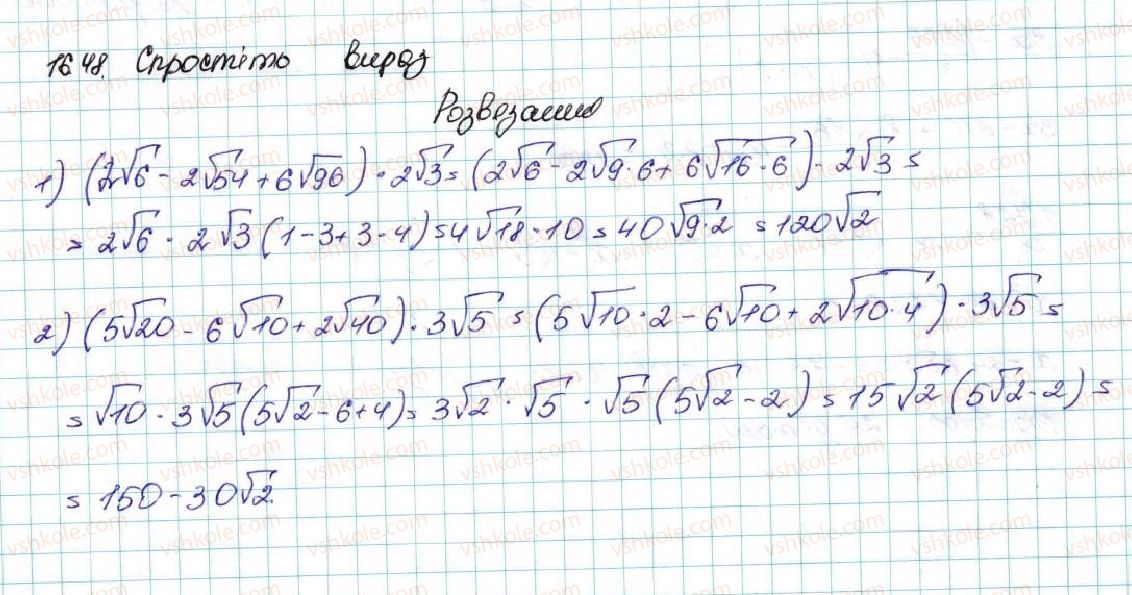 16.48. Спростіть вираз
Розвезання
1) (2√6 - 2√54 + 6√96) · 2√3 = (2√6 - 2√9·6 + 6√16·6) · 2√3 =
= 2√6 · 2√3 (1 - 3 + 3·4) = 4√18 · 10 = 40√9·2 = 120√2
2) (5√20 - 6√10 + 2√40) · 3√5 = (5√10·2 - 6√10 + 2√10·4) · 3√5 =
= √10 · 3√5 (5√2 - 6 + 4) = 3√2 · √5 · √5 (5√2 - 2) = 15√2 (5√2 - 2) =
= 150 - 30√2.